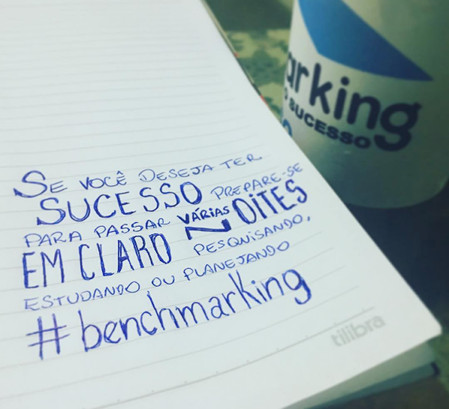 SE VOCÊ DESEJA TER
SUCESSO PREPARE-SE
PARA PASSAR VÁRIAS NOITES
EM CLARO PESQUISANDO,
ESTUDANDO OU PLANEJANDO
#benchmarking
tilibra
arking
SUCESSO